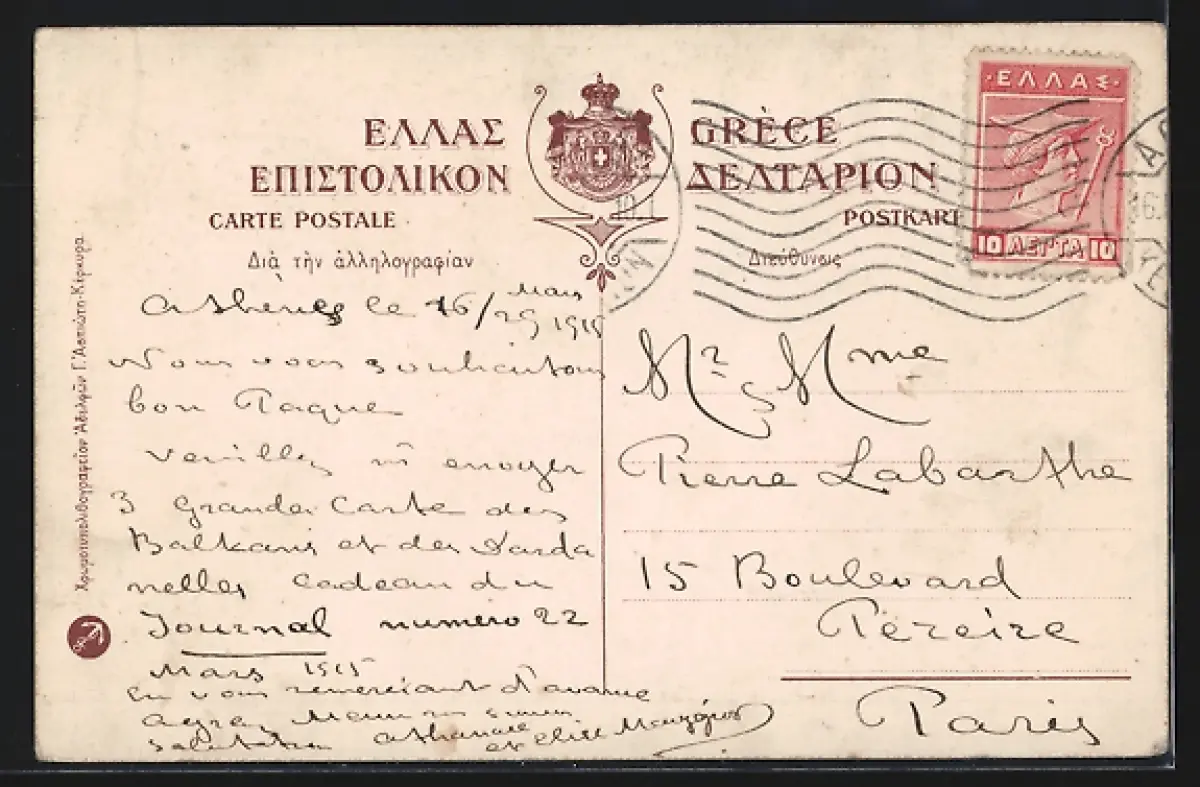 ΕΛΛΑΣ GRÈCE
ΕΠΙΣΤΟΛΙΚΟΝ ΔΕΛΤΑΡΙΟΝ
CARTE POSTALE POSTKART
Διὰ τὴν ἀλληλογραφίαν
Διεύθυνσις
·ΕΛΛΑΣ·
10 ΛΕΠΤΑ 10
Χρωμοτυπολιθογραφεῖον Ἀδελφῶν Γ. Ἀσπιώτη-Κέρκυρα.
Athenes le 16/29 Mars 1915
Nous vous souhaitons
bon Paque
Veuillez ns envoyer
3 Grande Carte des
Balkans et des Darda
nelles cadeau du
Journal numéro 22
Mars 1915
En vous remerciant d'avance
salutation Athanase
et
Mr & Mme
Pierre Labarthe
15 Boulevard
Péreire
Paris